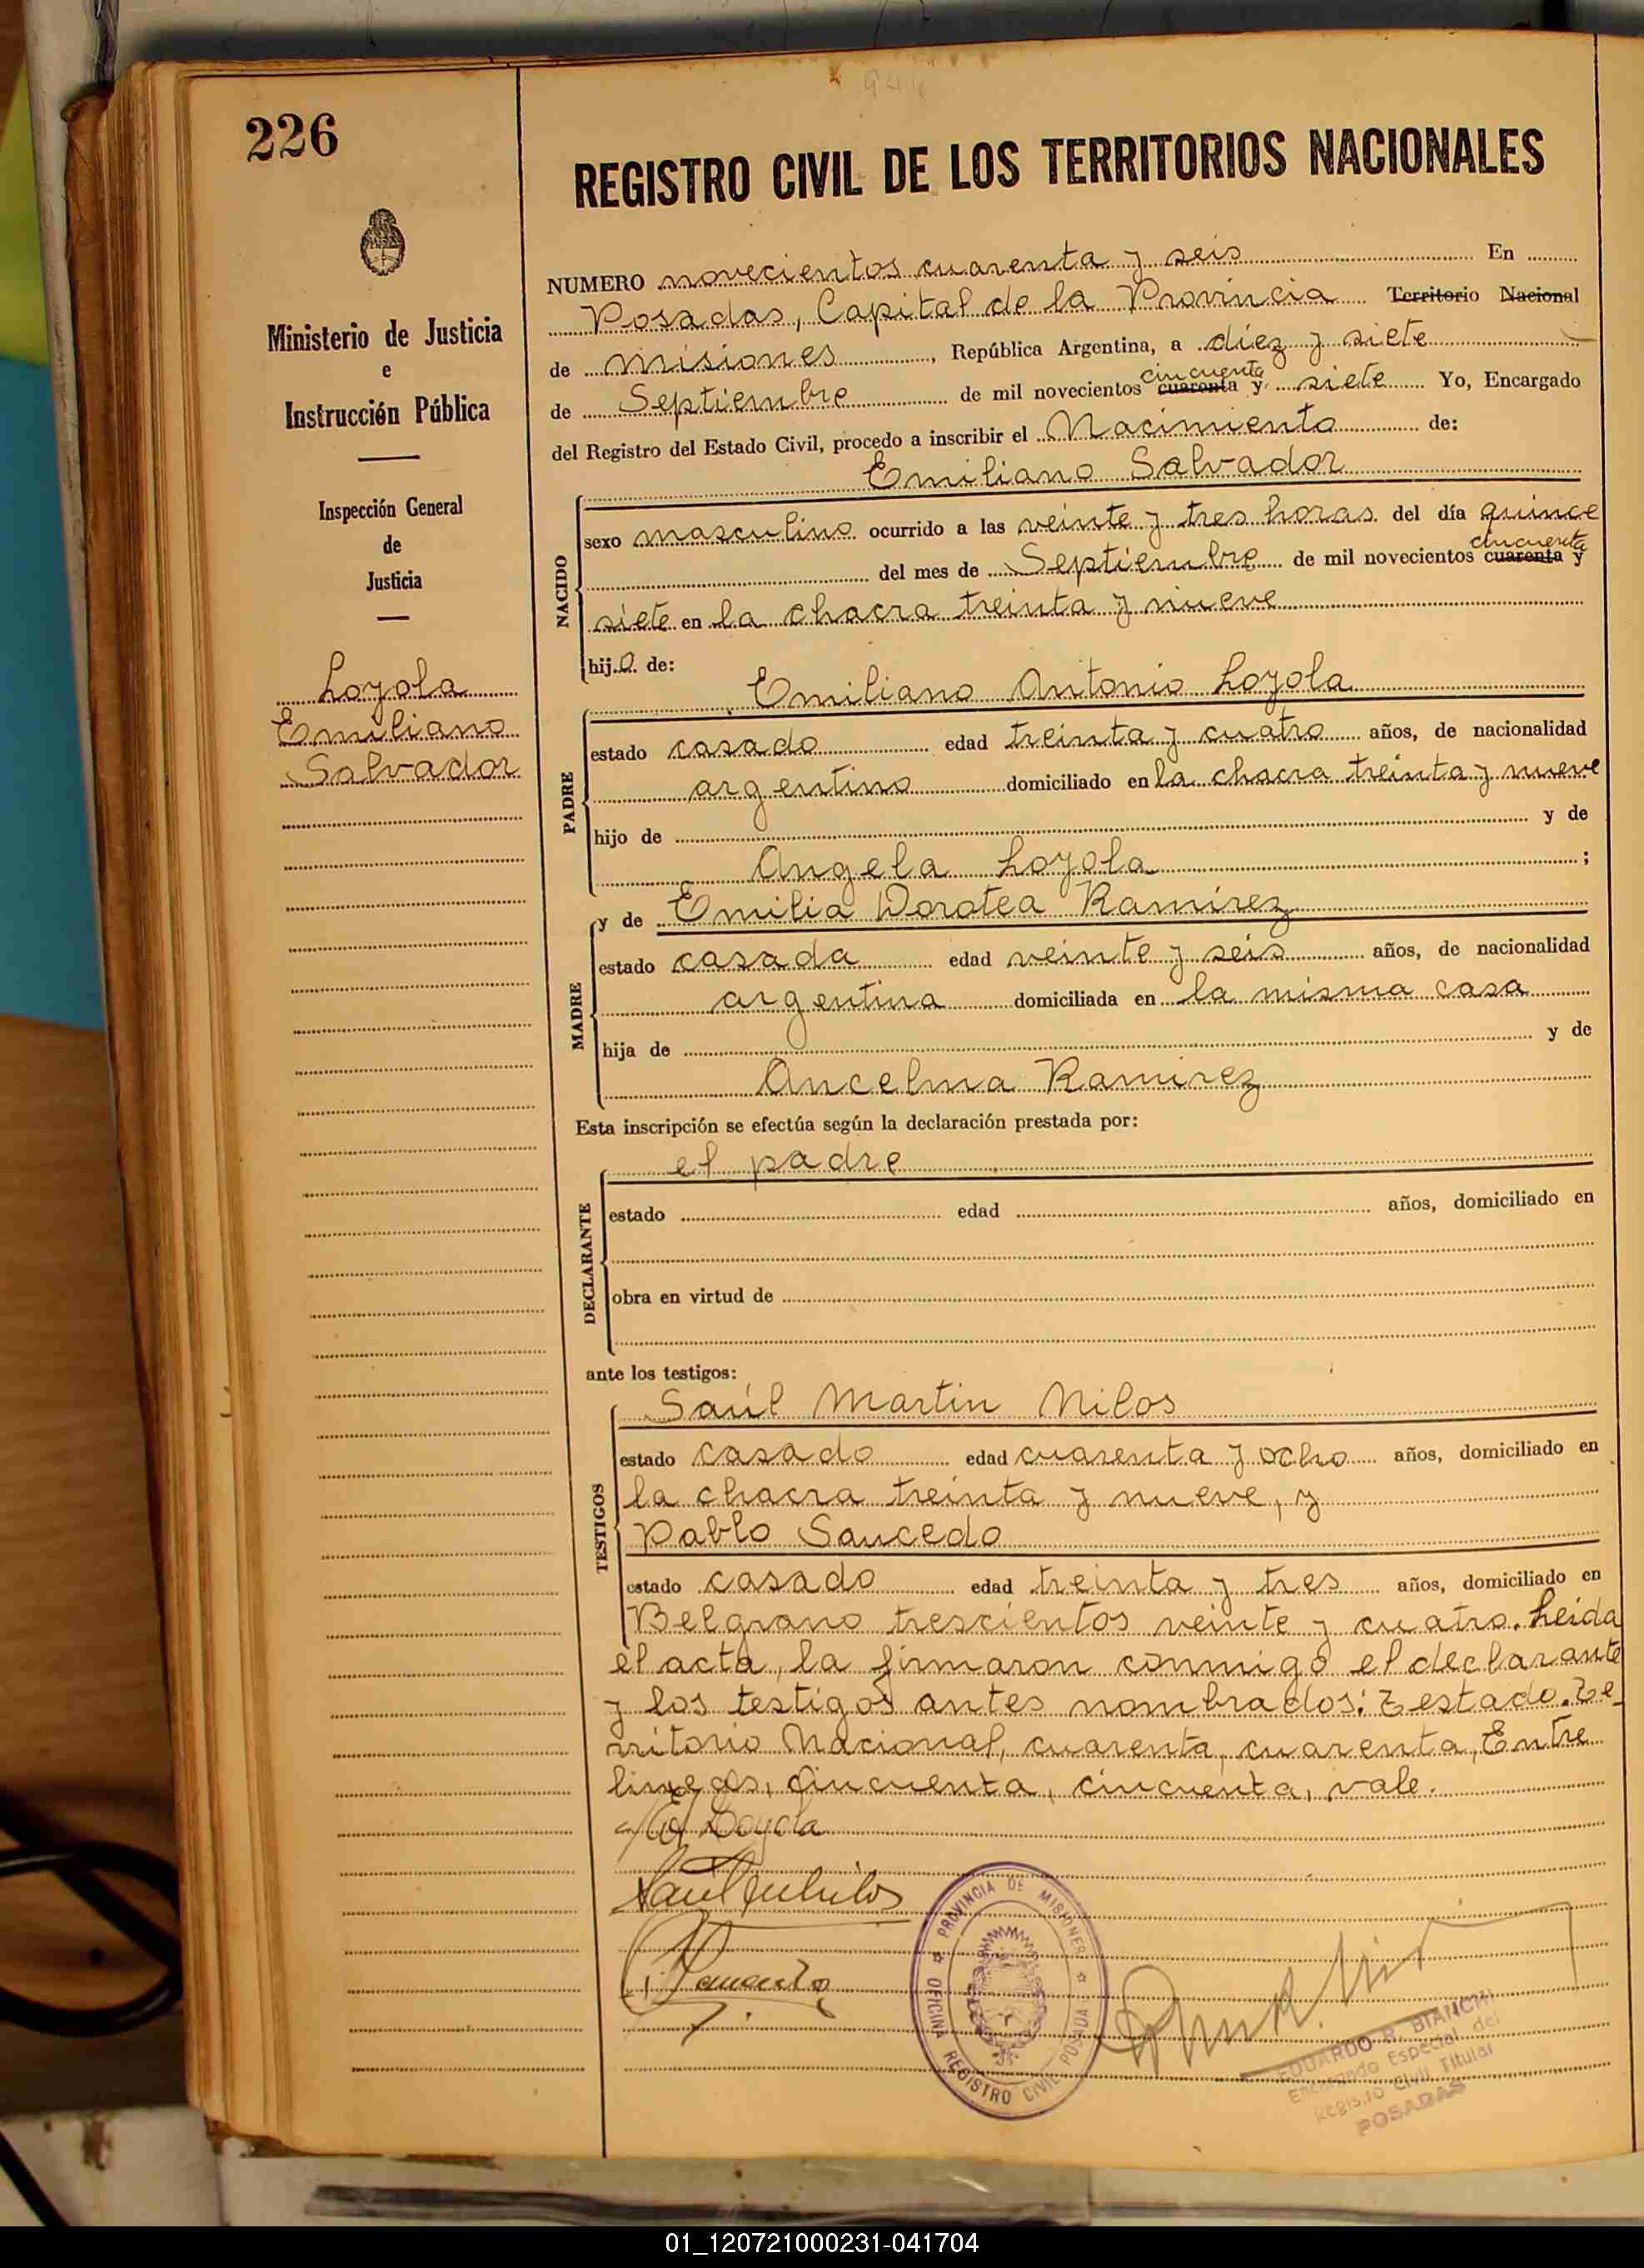 226
REGISTRO CIVIL DE LOS TERRITORIOS NACIONALES
Ministerio de Justicia
e
Instrucción Pública
Inspección General
de
Justicia
Loyola
Emiliano
Salvador
NUMERO novecientos cuarenta y seis En
Posadas, Capital de la Provincia Territorio Nacional
de misiones, República Argentina, a diez y siete
de Septiembre de mil novecientos cuarenta cincuenta y siete Yo, Encargado
del Registro del Estado Civil, procedo a inscribir el Nacimiento de:
Emiliano Salvador
NACIDO
sexo masculino ocurrido a las veinte y tres horas del día quince
del mes de Septiembre de mil novecientos cuarenta cincuenta y
siete en la chacra treinta y nueve
hijo de:
Emiliano Antonio Loyola
PADRE
estado casado edad treinta y cuatro años, de nacionalidad
argentino domiciliado en la chacra treinta y nueve
hijo de y de
Angela Loyola ;
y de Emilia Dorotea Ramirez
MADRE
estado casada edad veinte y seis años, de nacionalidad
argentina domiciliada en la misma casa
hija de y de
Ancelma Ramirez
Esta inscripción se efectúa según la declaración prestada por:
el padre
DECLARANTE
estado edad años, domiciliado en
obra en virtud de
ante los testigos:
Saúl Martin Nilos
TESTIGOS
estado casado edad cuarenta y ocho años, domiciliado en
la chacra treinta y nueve, y
Pablo Saucedo
estado casado edad treinta y tres años, domiciliado en
Belgrano trescientos veinte y cuatro. Leida
el acta, la firmaron conmigo el declarante
y los testigos antes nombrados: Testado. Te-
rritorio Nacional, cuarenta, cuarenta, Entre
lineas, cincuenta, cincuenta, vale.
Loyola
PROVINCIA DE MISIONES
OFICINA REGISTRO CIVIL POSADAS
EDUARDO R. BIANCHI
Encargado Especial del
Registro Civil Titular
POSADAS
01_120721000231-041704